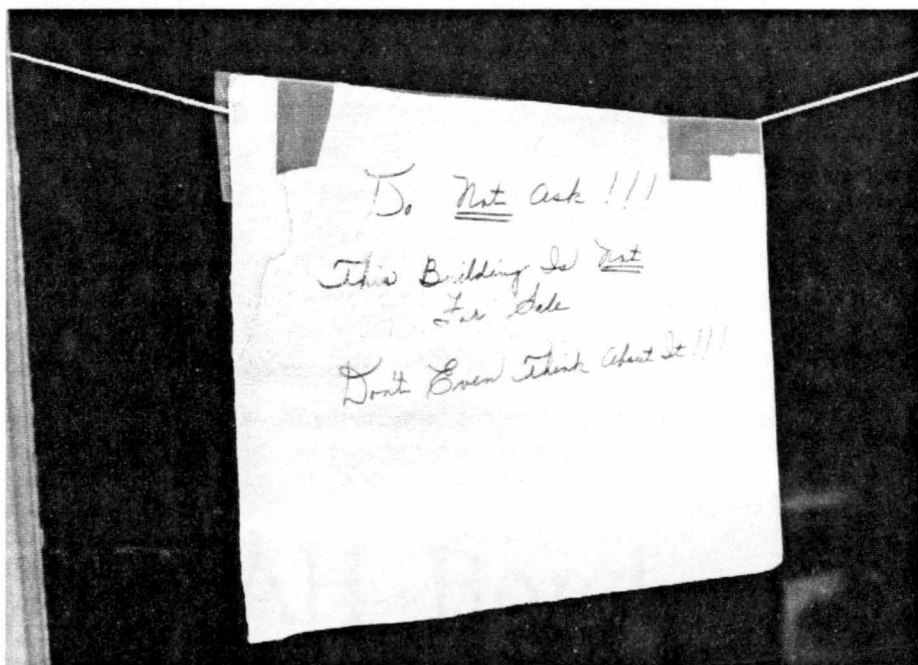 Do Not Ask!!!
This Building Is Not
For Sale
Don't Even Think About It!!!